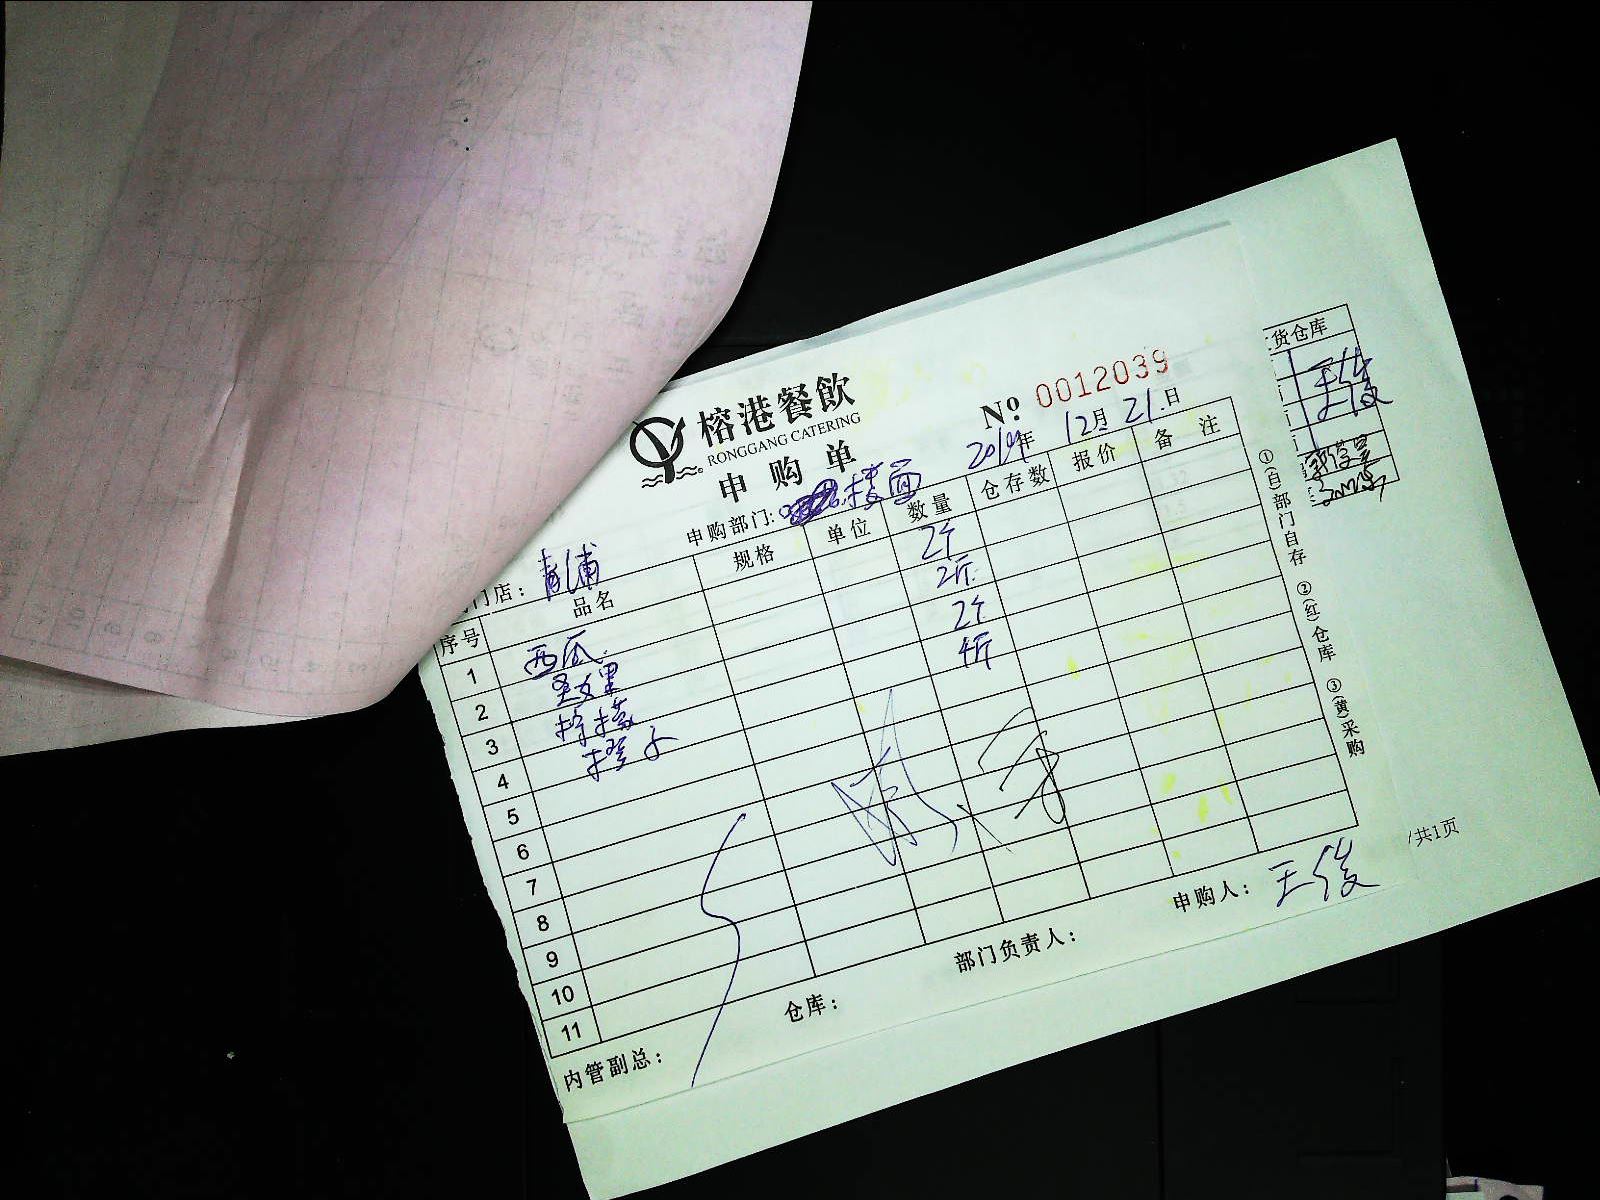 榕港餐飲
RONGGANG CATERING
申购单
№ 0012039
2019年 12月 21日
门店: 青浦
申购部门: 楼面
序号 品名 规格 单位 数量 仓存数 报价 备注
1 西瓜 2个
2 圣女果 2斤
3 柠檬 2个
4 橙子 4斤
5
6
7
8
9
10
11
内管副总:
仓库:
部门负责人:
申购人: 王俊
①(白)部门自存 ②(红)仓库 ③(黄)采购
货仓库
王俊
/共1页